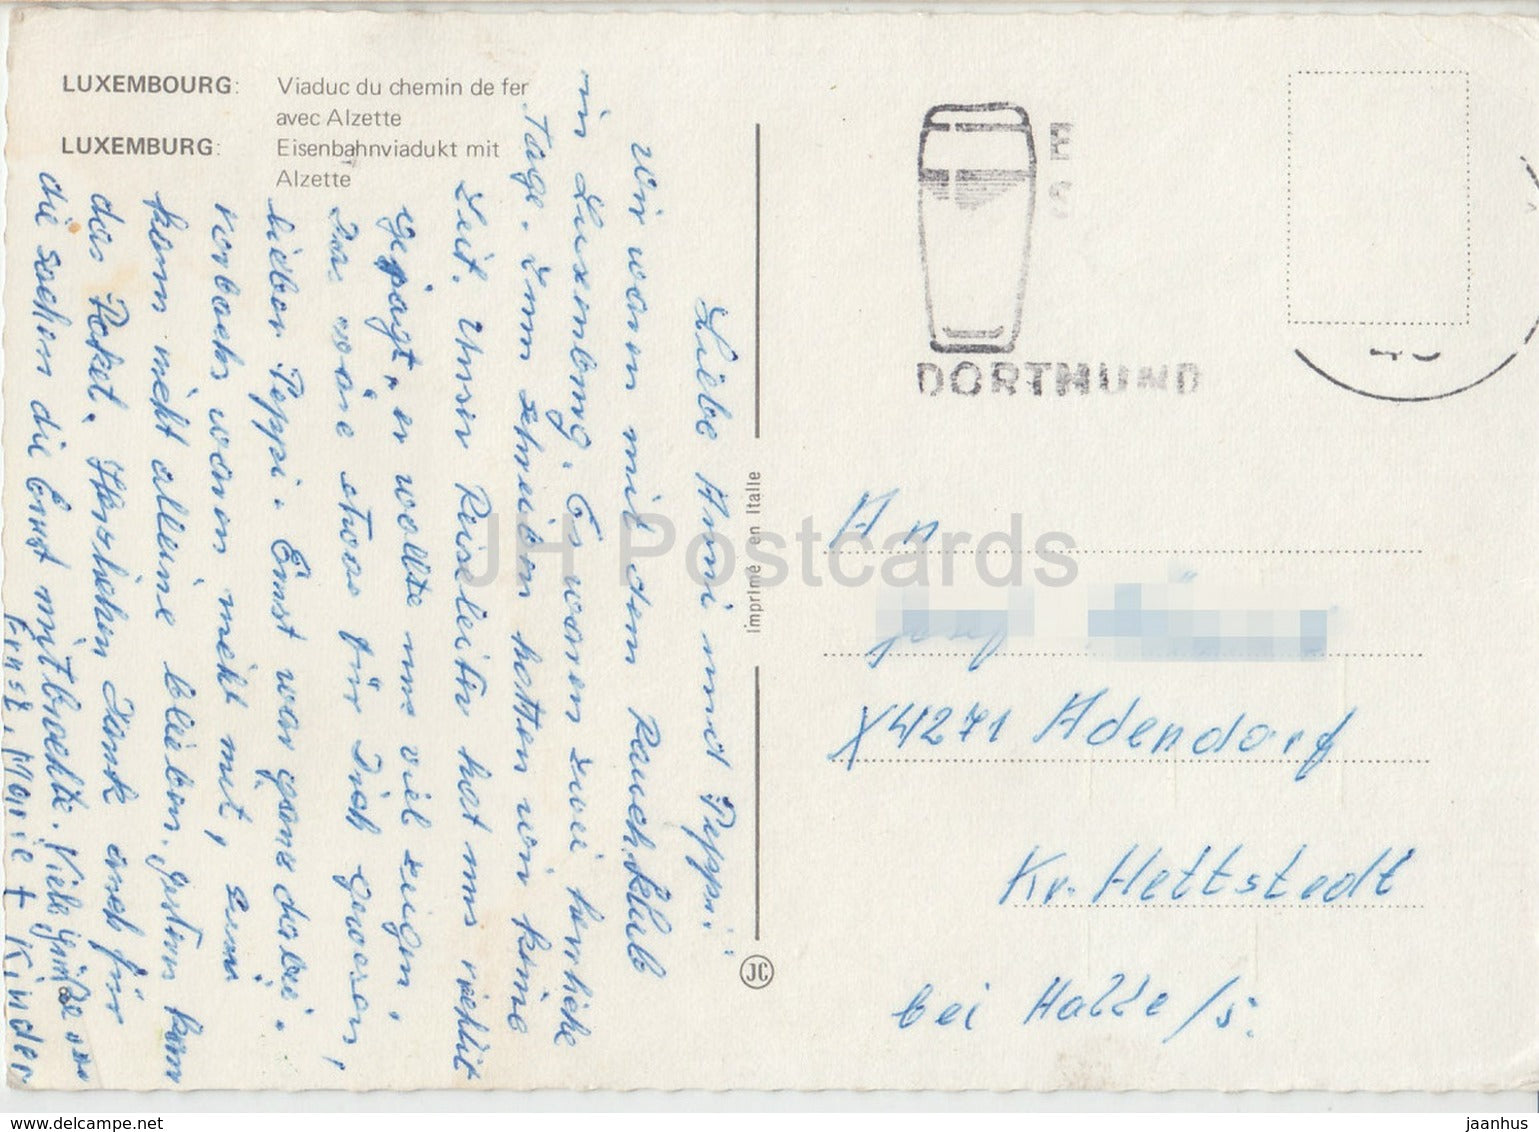 LUXEMBOURG: Viaduc du chemin de fer
avec Alzette
LUXEMBURG: Eisenbahnviadukt mit
Alzette
Liebe Anni und Peppi!
Wir waren mit dem Rauchklub
in Luxemburg. Es waren zwei herrliche
Tage. Zum schreiben hatten wir keine
Zeit. Unser Reiseleiter hat uns richtig
gejagt, er wollte uns viel zeigen.
Das wäre etwas für Dich gewesen,
lieber Peppi. Ernst war ganz dabei.
waren nicht mit,
kann nicht alleine bleiben. gestern kam
das Paket. Herzlichen Dank auch für
die sachen die Ernst mitbrachte. Viele Grüße von
Ernst, Marie + Kinder
imprimé en Italie
JC
DORTMUND
An
Josef
X4271 Adendorf
Kr. Hettstedt
bei Halle/S.
JH Postcards
www.delcampe.net
jaanhus